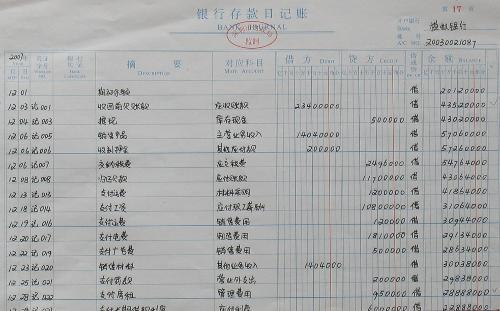 银行存款日记账
BANK JOURNAL
第 17 页
开户银行 模拟银行
账号
A/C NO. 20030021087
2009年 凭证 摘要 对应科目 借方 贷方 借或贷 余额
DESCRIPTION MAIN ACCOUNT DEBIT CREDIT BALANCE
12 01 期初余额 借 20120000
12 03 记001 收回前欠货款 应收账款 23400000 借 43520000
12 04 记003 提现 库存现金 500000 借 43020000
12 06 记005 销售商品 主营业务收入 14040000 借 57060000
12 06 记006 收到押金 其他应付款 200000 借 57260000
12 06 记007 交纳税费 应交税费 2496000 借 54764000
12 08 记008 应付账款 11700000 借 43064000
12 13 记013 支付运费 材料采购 1200000 借 41864000
12 18 记014 支付工资 应付职工薪酬 10800000 借 31064000
12 19 记016 支付运费 销售费用 120000 借 30944000
12 20 记017 支付电费 1810000 借 29134000
12 22 记019 支付广告费 销售费用 500000 借 28634000
12 23 记020 销售材料 其他业务收入 1404000 借 30038000
12 25 记021 营业外支出 200000 借 29838000
12 28 记022 支付房租 管理费用 950000 借 28888000